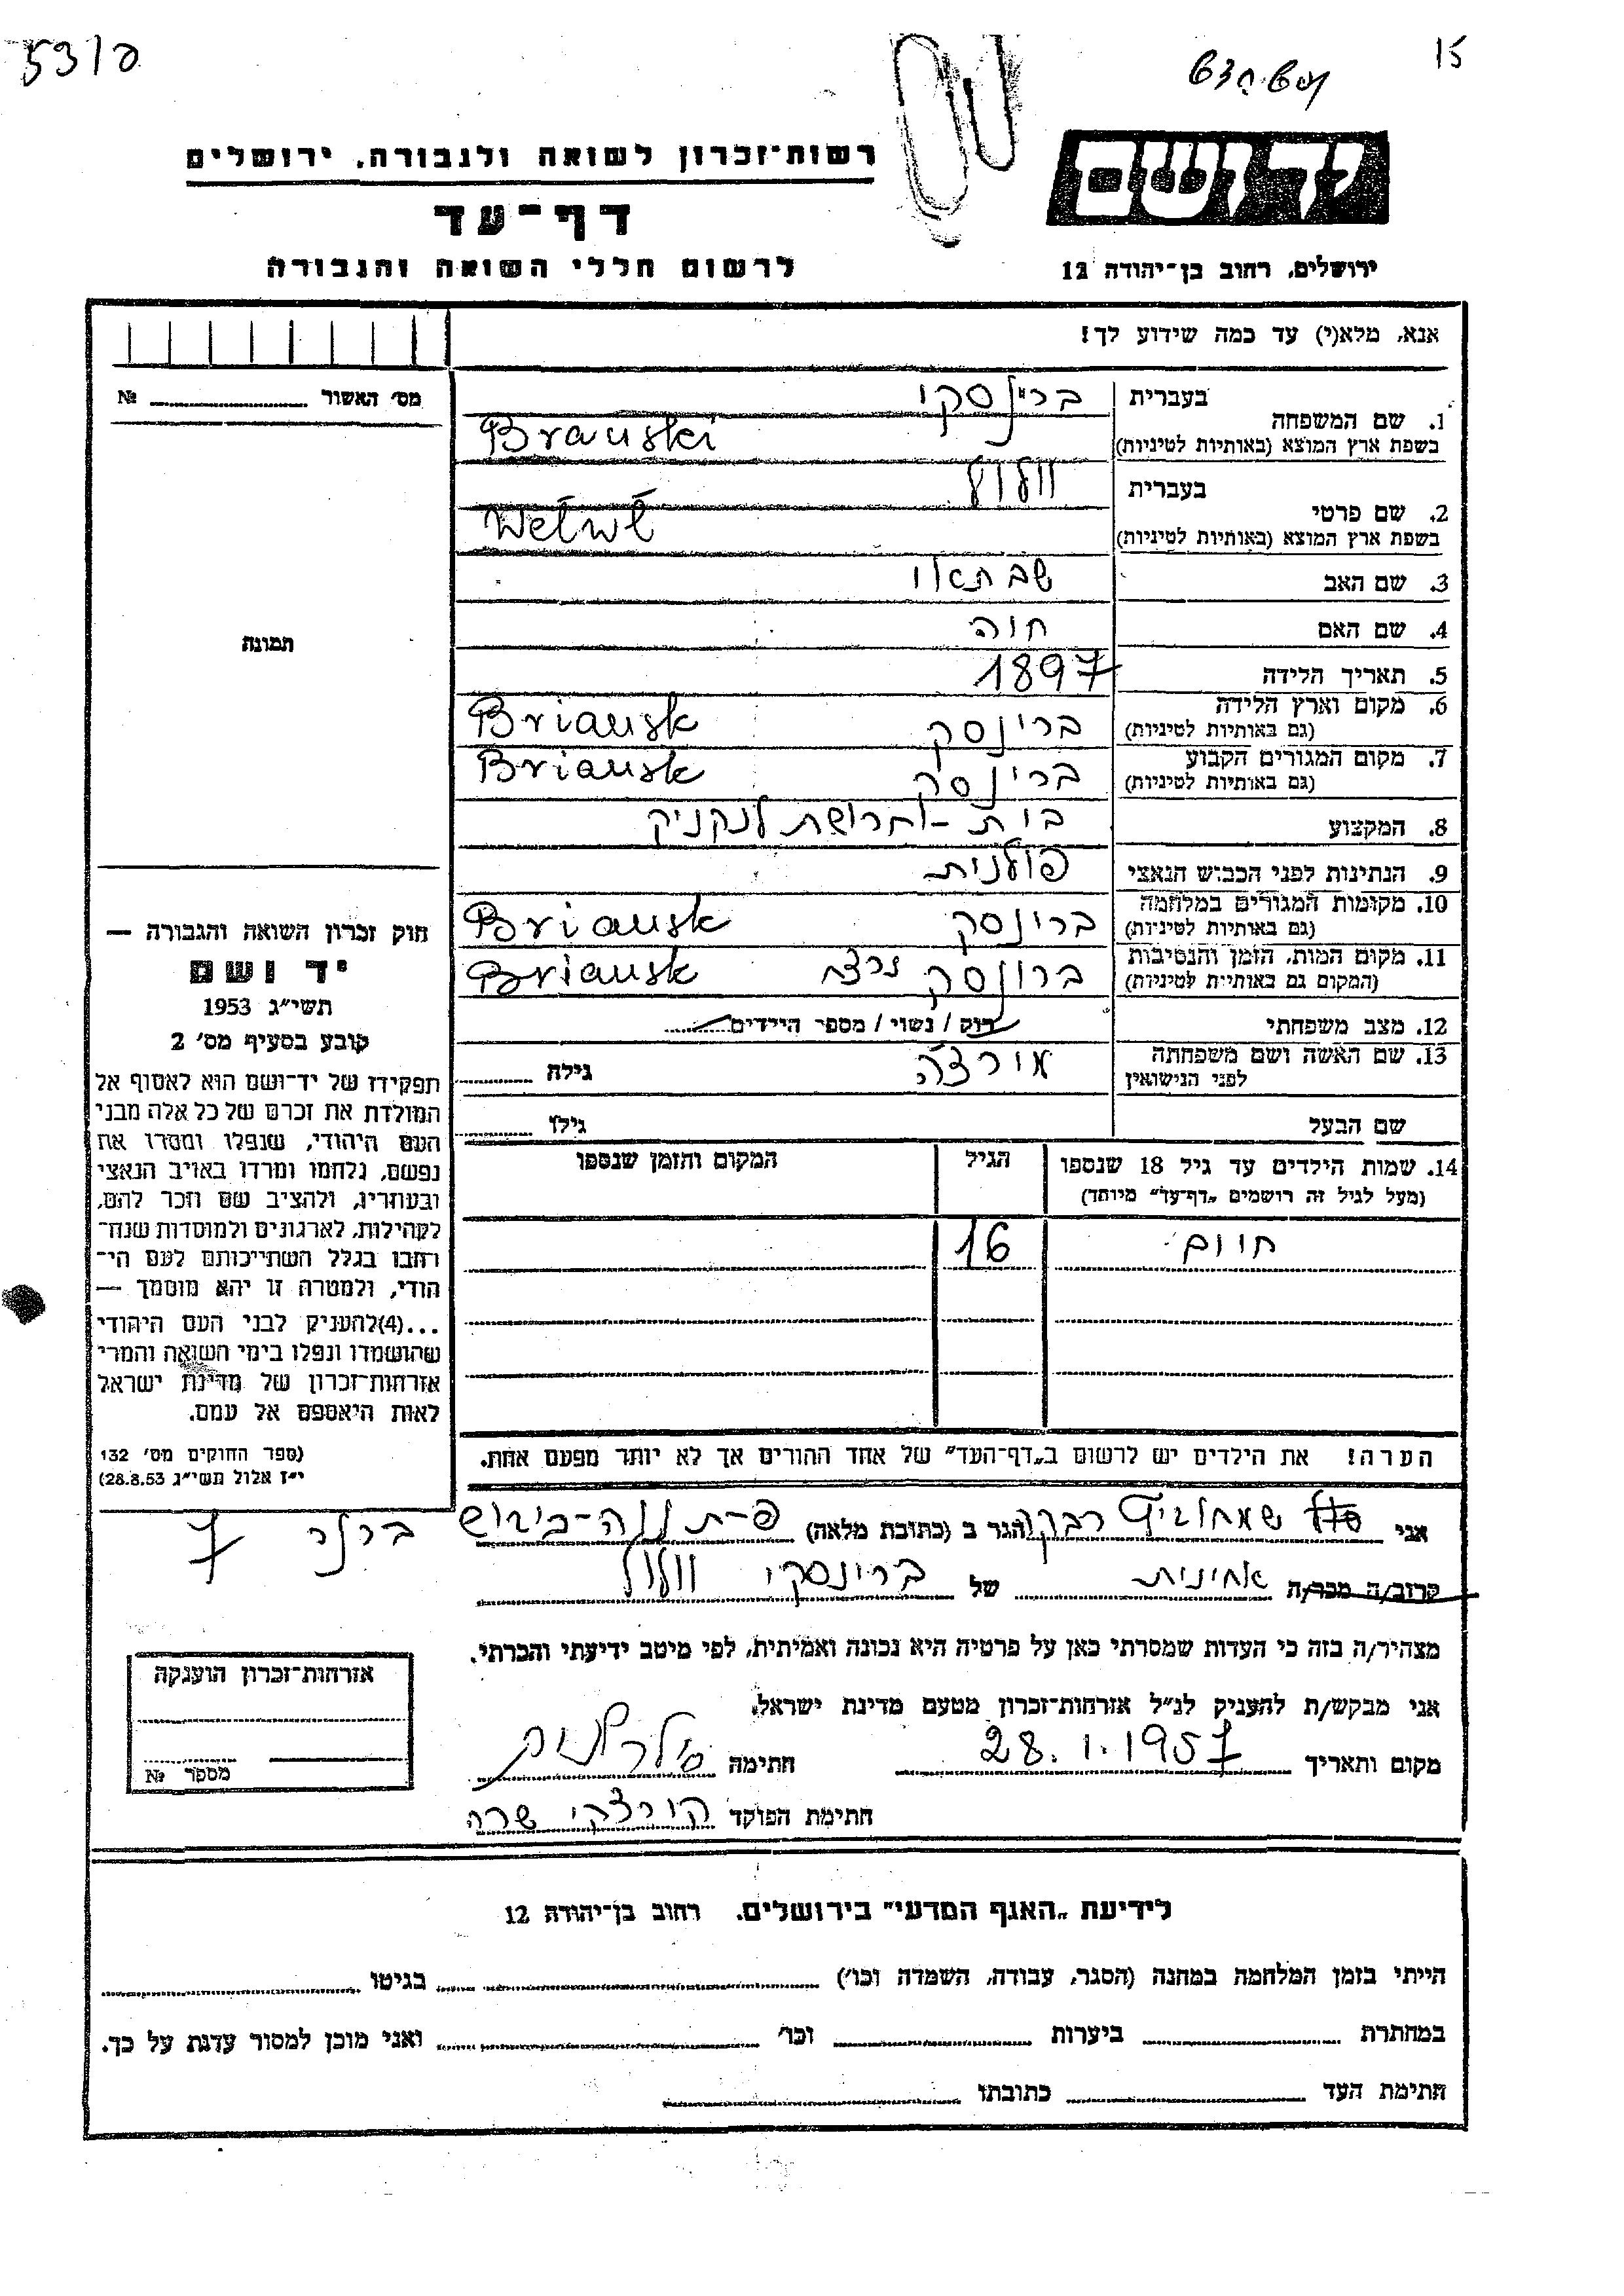 53/ס
15
יד ושם
רשות־זכרון לשואה ולגבורה, ירושלים
דף־עד
לרשום חללי השואה והגבורה
ירושלים, רחוב בן־יהודה 12
אנא, מלא(י) עד כמה שידוע לך!
מס׳ האשור №
1. שם המשפחה
בעברית ברינסקי
בשפת ארץ המוצא (באותיות לטיניות) Branski
2. שם פרטי
בעברית וולוול
בשפת ארץ המוצא (באותיות לטיניות) Welwl
3. שם האב שבתאי
4. שם האם חוה
תמונה
5. תאריך הלידה 1897
6. מקום וארץ הלידה
(גם באותיות לטיניות) ברינסק Briansk
7. מקום המגורים הקבוע
(גם באותיות לטיניות) ברינסק Briansk
8. המקצוע בית-חרושת לנקניק
9. הנתינות לפני הכבוש הנאצי פולנית
10. מקומות המגורים במלחמה
(גם באותיות לטיניות) ברינסק Briansk
11. מקום המות, הזמן והנסיבות
(המקום גם באותיות לטיניות) ברינסק נרצח Briansk
12. מצב משפחתי רוק / נשוי / מספר הילדים
13. שם האשה ושם משפחתה
לפני הנישואין גילה
שם הבעל גילו
14. שמות הילדים עד גיל 18 שנספו
(מעל לגיל זה רושמים „דף־עד” מיוחד)
הגיל
המקום והזמן שנספו
חיים 16
הערה! את הילדים יש לרשום ב„דף־העד” של אחד ההורים אך לא יותר מפעם אחת.
חוק זכרון השואה והגבורה —
יד ושם
תשי״ג 1953
קובע בסעיף מס׳ 2
תפקידו של יד־ושם הוא לאסוף אל
המולדת את זכרם של כל אלה מבני
העם היהודי, שנפלו ומסרו את
נפשם, נלחמו ומרדו באויב הנאצי
ובעוזריו, ולהציב שם וזכר להם,
לקהילות, לארגונים ולמוסדות שנח־
רחבו בגלל השתייכותם לעם הי־
הודי, ולמטרה זו יהא מוסמך —
...(4)להעניק לבני העם היהודי
שהושמדו ונפלו בימי השואה והמרי
אזרחות־זכרון של מדינת ישראל
לאות היאספם אל עמם.
(ספר החוקים מס׳ 132
י״ז אלול תשי״ג 28.8.53)
אני רבקה הגר ב (כתובת מלאה) פ-תקוה-כירוש ברנר 7
קרוב/ה מכר/ה אחינית של ברינסקי וולוול
מצהיר/ה בזה כי העדות שמסרתי כאן על פרטיה היא נכונה ואמיתית, לפי מיטב ידיעתי והכרתי.
אני מבקש/ת להעניק לנ״ל אזרחות־זכרון מטעם מדינת ישראל.
מקום ותאריך 28.1.1957 חתימה
חתימת הפוקד קורצקי שרה
אזרחות־זכרון הוענקה
מספר №
לידיעת „האגף המדעי” בירושלים. רחוב בן־יהודה 12
הייתי בזמן המלחמה במחנה (הסגר, עבודה, השמדה וכו׳) בגיטו
במחתרת ביערות וכו׳ ואני מוכן למסור עדות על כך.
חתימת העד כתובתו